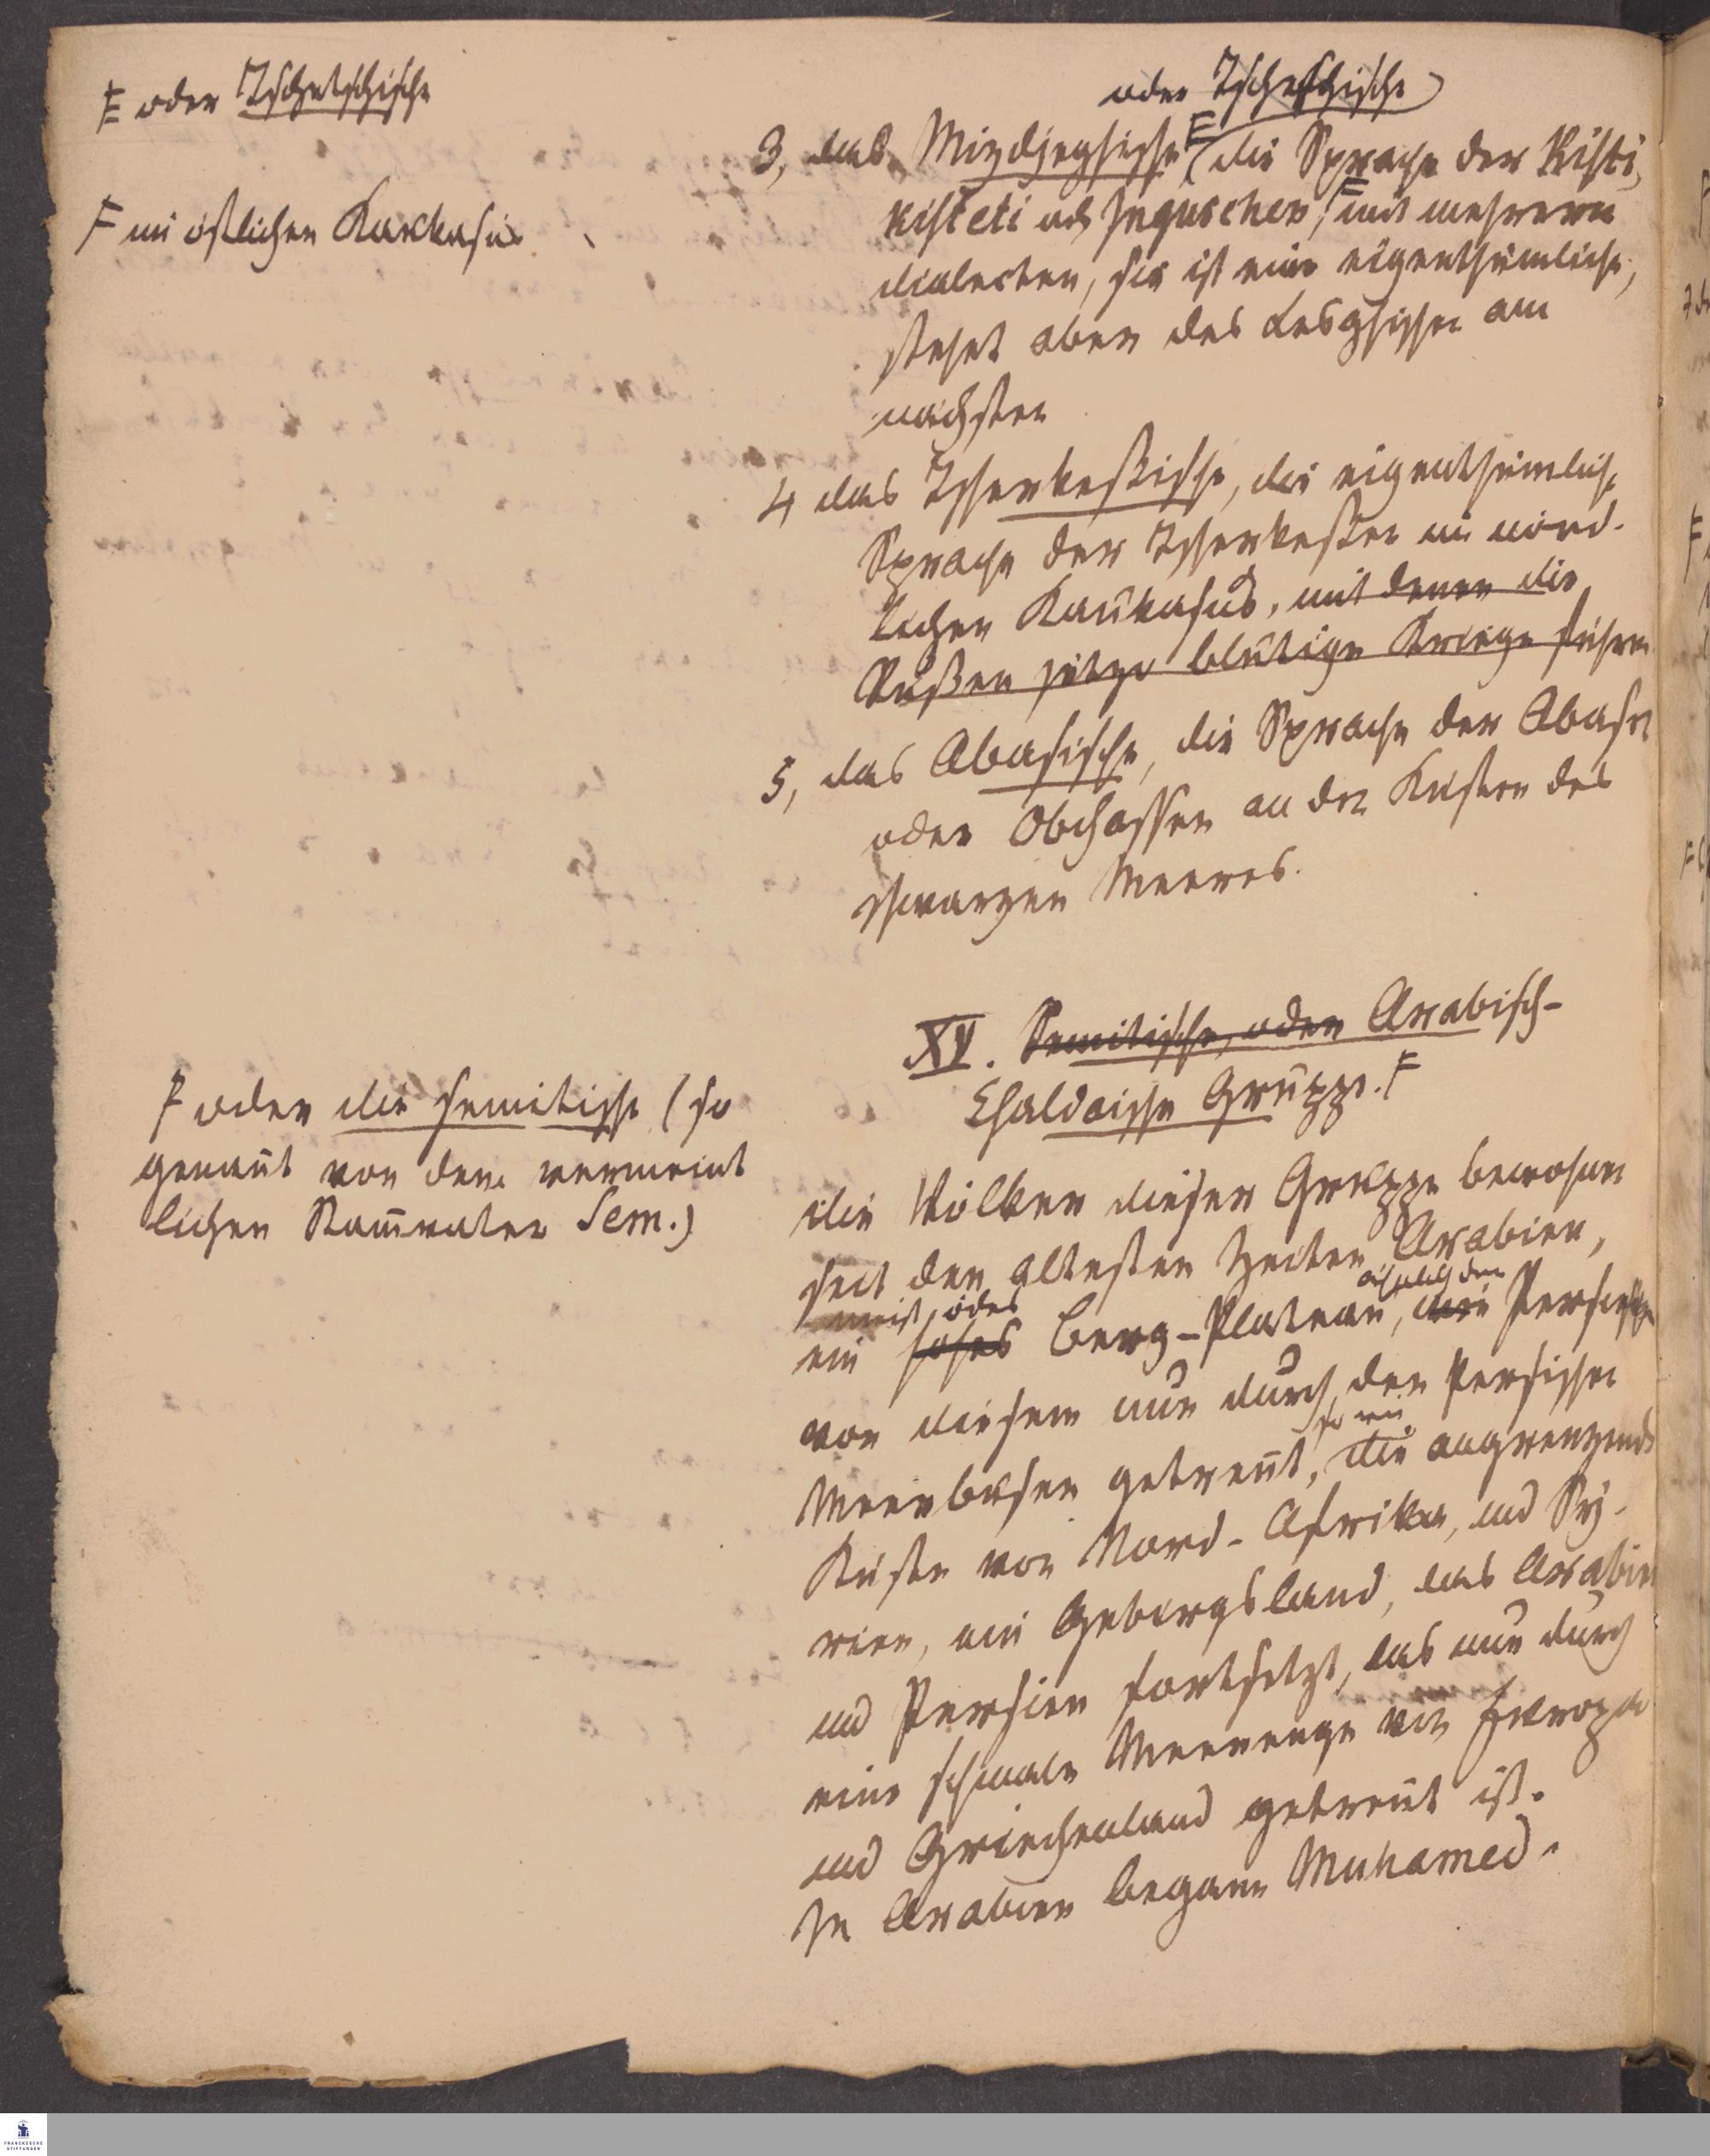 F oder Tschetschische
F im östlichen Kaukasus
oder Tschetschische
3, das Mizdjeghische F (die Sprache der Kisti,
Kisteti od Inguschen, F mit mehreren
dialecten, sie ist eine eigenthümliche,
stehet aber des Lesghischen am
nächsten
4 das Tscherkeßische, die eigenthümliche
Sprache der Tscherkeßen im nörd-
lichen Kaukasus, mit denen die
Rußen jetzo blutige Kriege führen
5, das Abasische, die Sprache der Abasen
oder Abchassen an den Küsten des
schwarzen Meeres.
XV. Semitische, oder Arabisch-
Chaldäische Gruppe. F
F oder die semitische (so
genañt von dem vermeint
lichen Stam̄vater Sem.)
die Völker dieser Gruppe bewohnen
seit den ältesten Zeiten Arabien,
meist ödes
ein hohes Berg-Plateau, Persischen
von diesem nur durch den Persischen
so wie
Meerbusen getreñt, die angrenzende
Küste von Nord-Afrika, und Sy-
rien, ein Gebirgsland, das Arabien
und Persien fortsetzt, das nur durch
eine schmale Meerenge von Europa
und Griechenland getreñt ist.
In Arabien begann Muhamed.
FRANCKESCHE
STIFTUNGEN